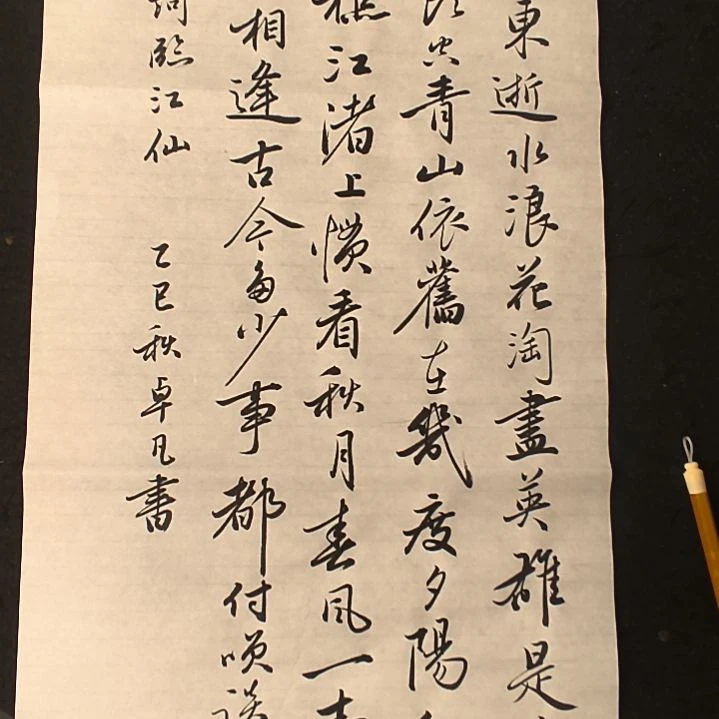 東逝水浪花淘盡英雄是
空青山依舊在幾度夕陽
樵江渚上慣看秋月春風一壺
相逢古今多少事都付笑談
詞臨江仙 乙巳秋卓凡書